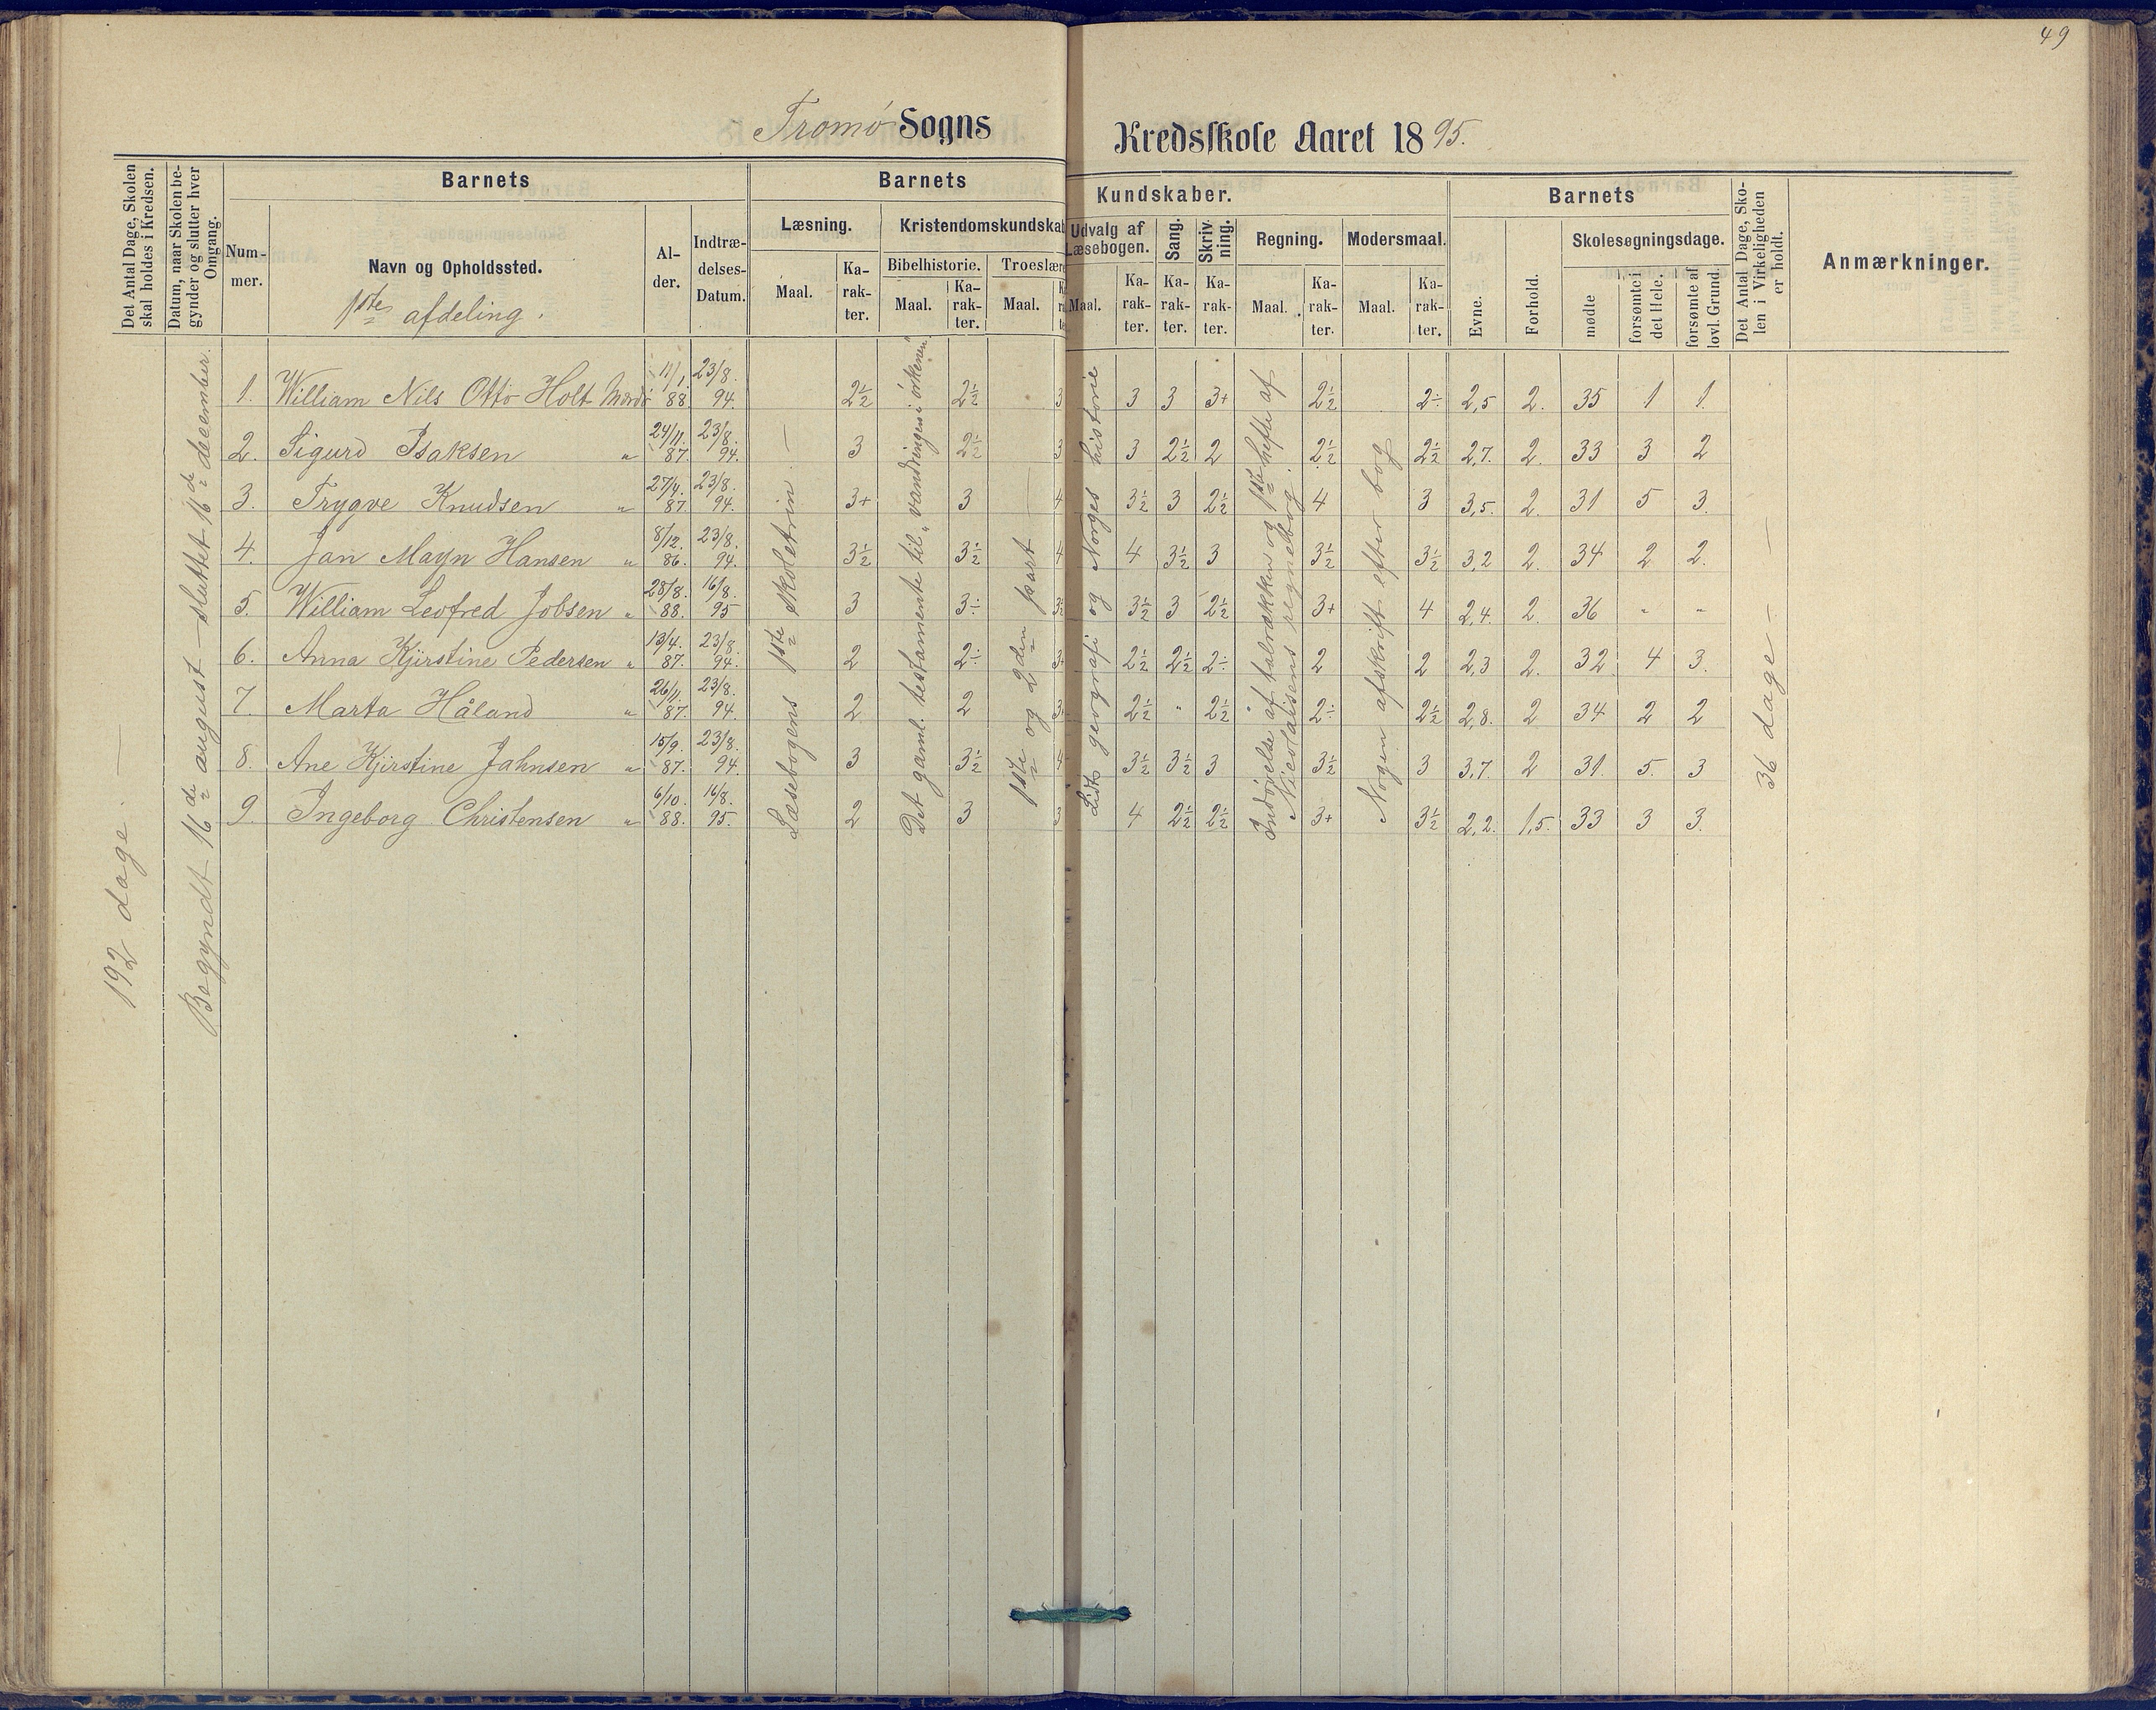 49
Tromø Sogns Kredsskole Aaret 1895.
Det Antal Dage, Skolen skal holdes i Kredsen.
Datum, naar Skolen begynder og slutter hver Omgang.
Barnets
Nummer.
Navn og Opholdssted.
1ste afdeling.
Alder.
Indtrædelses-Datum.
Barnets Kundskaber.
Læsning.
Maal.
Karakter.
Kristendomskundskab
Bibelhistorie.
Maal.
Karakter.
Troeslære
Maal.
Udvalg af Læsebogen.
Maal.
Karakter.
Sang.
Karakter.
Skrivning.
Karakter.
Regning.
Maal.
Karakter.
Modersmaal.
Maal.
Karakter.
Barnets
Evne.
Forhold.
Skolesøgningsdage.
mødte
forsømte i det Hele.
forsømte af lovl. Grund.
Det Antal Dage, Skolen i Virkeligheden er holdt.
Anmærkninger.
192 dage. —
Begyndt 16de august — sluttet 16de december.
Læsebogens 1ste skoletrin. —
Det gaml. testamente til „vandringen i ørkenen"
1ste og 2den part —
Lidt geografi og Norges historie
Indøvelse af talrækken og 1ste hefte af Nicolaisens regnebog.
Nogen afskrift efter bog
36 dage. —
1. William Nils Otto Holt Mærdø 11/1. 88. 23/8. 94. 2½ 2½ 3 3 3 3+ 2½ 2÷ 2,5 2. 35 1 1.
2. Sigurd Isaksen " 24/11. 87. 23/8. 94. 3 2½ 3 3 2½ 2 2½ 2½ 2,7. 2. 33 3 2
3. Trygve Knudsen " 27/4. 87. 23/8. 94. 3+ 3 4 3½ 3 2½ 4 3 3,5. 2. 31 5 3.
4. Jan Mayn Hansen " 8/12. 86. 23/8. 94. 3½ 3½ 4 4 3½ 3 3½ 3½ 3,2 2. 34 2 2.
5. William Leofred Jobsen " 28/8. 88. 16/8. 95 3 3÷ 3½ 3½ 3 2½ 3+ 4 2,4. 2. 36 " "
6. Anna Kjirstine Pedersen " 13/4. 87. 23/8. 94. 2 2÷ 3+ 2½ 2½ 2÷ 2 2 2,3 2. 32 4 3.
7. Marta Håland " 26/11. 87. 23/8. 94. 2 2 3+ 2½ " 2½ 2÷ 2½ 2,8. 2 34 2 2
8. Ane Kjirstine Jahnsen " 15/9. 87. 23/8. 94. 3 3½ 4 3½ 3½ 3 3½ 3 3,7. 2 31. 5. 3
9. Ingeborg Christensen " 6/10. 88. 16/8. 95. 2 3 3 4 2½ 2½ 3+ 3½ 2,2. 1,5. 33 3 3.